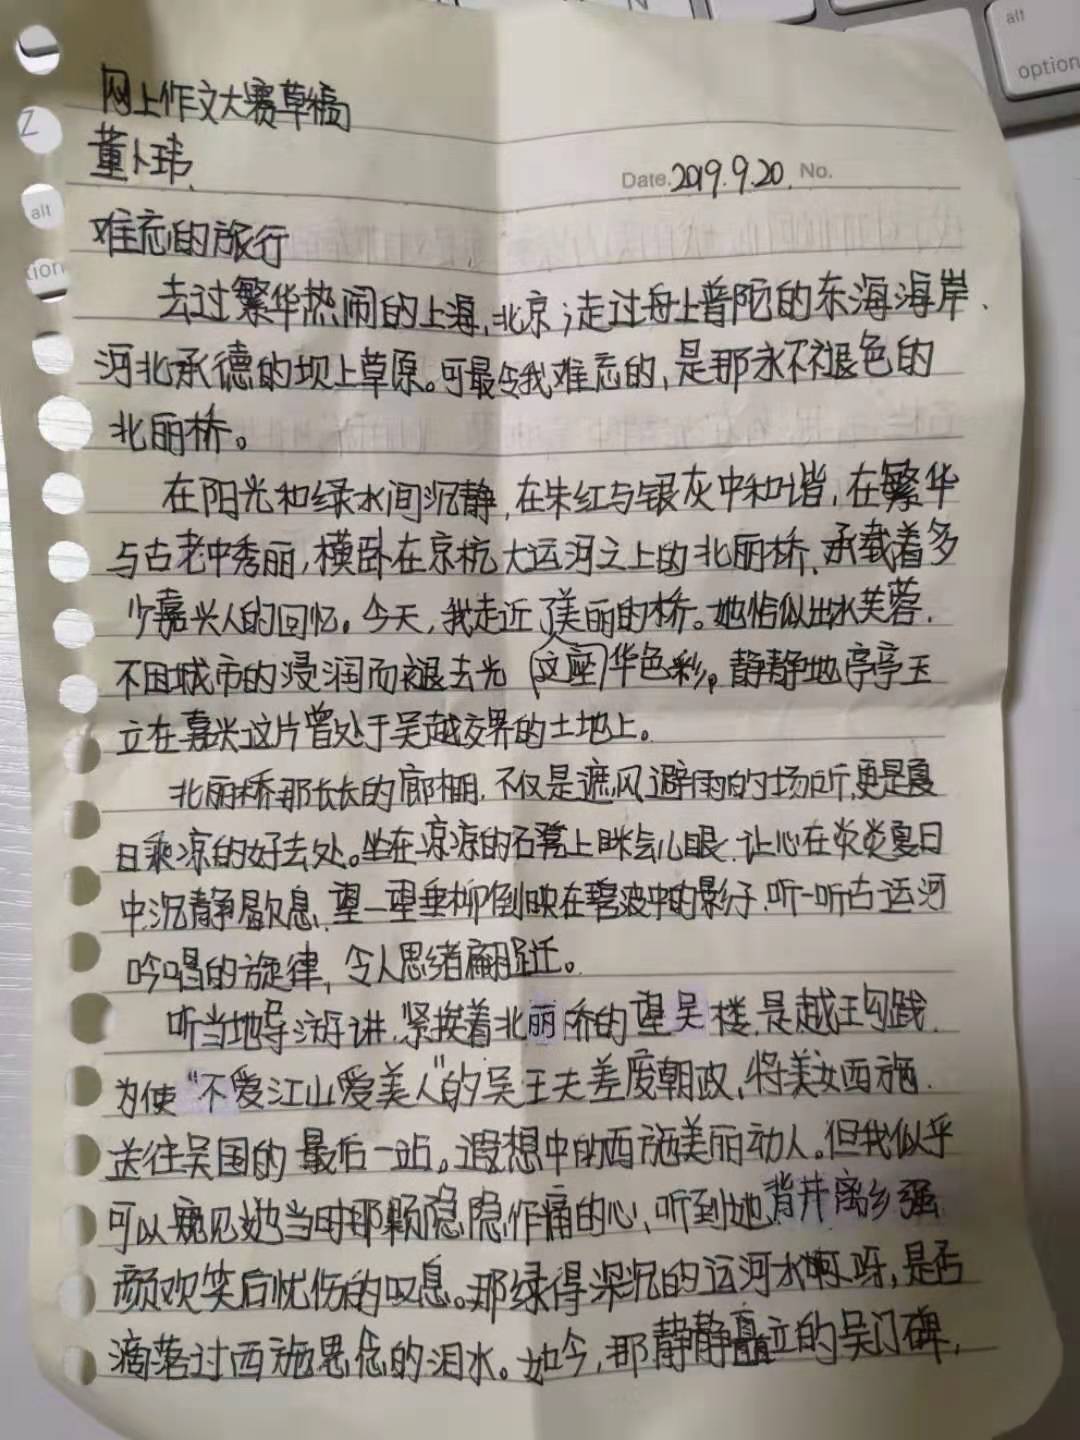 alt
option
Z
alt
tion
网上作文大赛草稿
董卜玮
Date.2019.9.20. No.
难忘的旅行
去过繁华热闹的上海,北京;走过舟上普陀的东海海岸、
河北承德的坝上草原。可最令我难忘的,是那永不褪色的
北丽桥。
在阳光和绿水间沉静,在朱红与银灰中和谐,在繁华
与古老中秀丽,横卧在京杭大运河之上的北丽桥,承载着多
少嘉兴人的回忆。今天,我走近了美丽的桥。她恰似出水芙蓉,
不因城市的浸润而褪去光(这座)华色彩,静静地亭亭玉
立在嘉兴这片曾处于吴越交界的土地上。
北丽桥那长长的廊棚,不仅是遮风避雨的场所,更是夏
日乘凉的好去处。坐在凉凉的石凳上眯会儿眼,让心在炎炎夏日
中沉静歇息,望一望垂柳倒映在碧波中的影子,听一听古运河
吟唱的旋律,令人思绪翩跹。
听当地导游讲,紧挨着北丽桥的望吴楼,是越王勾践
为使“不爱江山爱美人”的吴王夫差废朝政,将美女西施
送往吴国的最后一站。遐想中的西施美丽动人。但我似乎
可以窥见她当时那颗隐隐作痛的心,听到她背井离乡强
颜欢笑后忧伤的叹息。那绿得深沉的运河水啊呀,是否
滴落过西施思念的泪水。如今,那静静矗立的吴门碑,